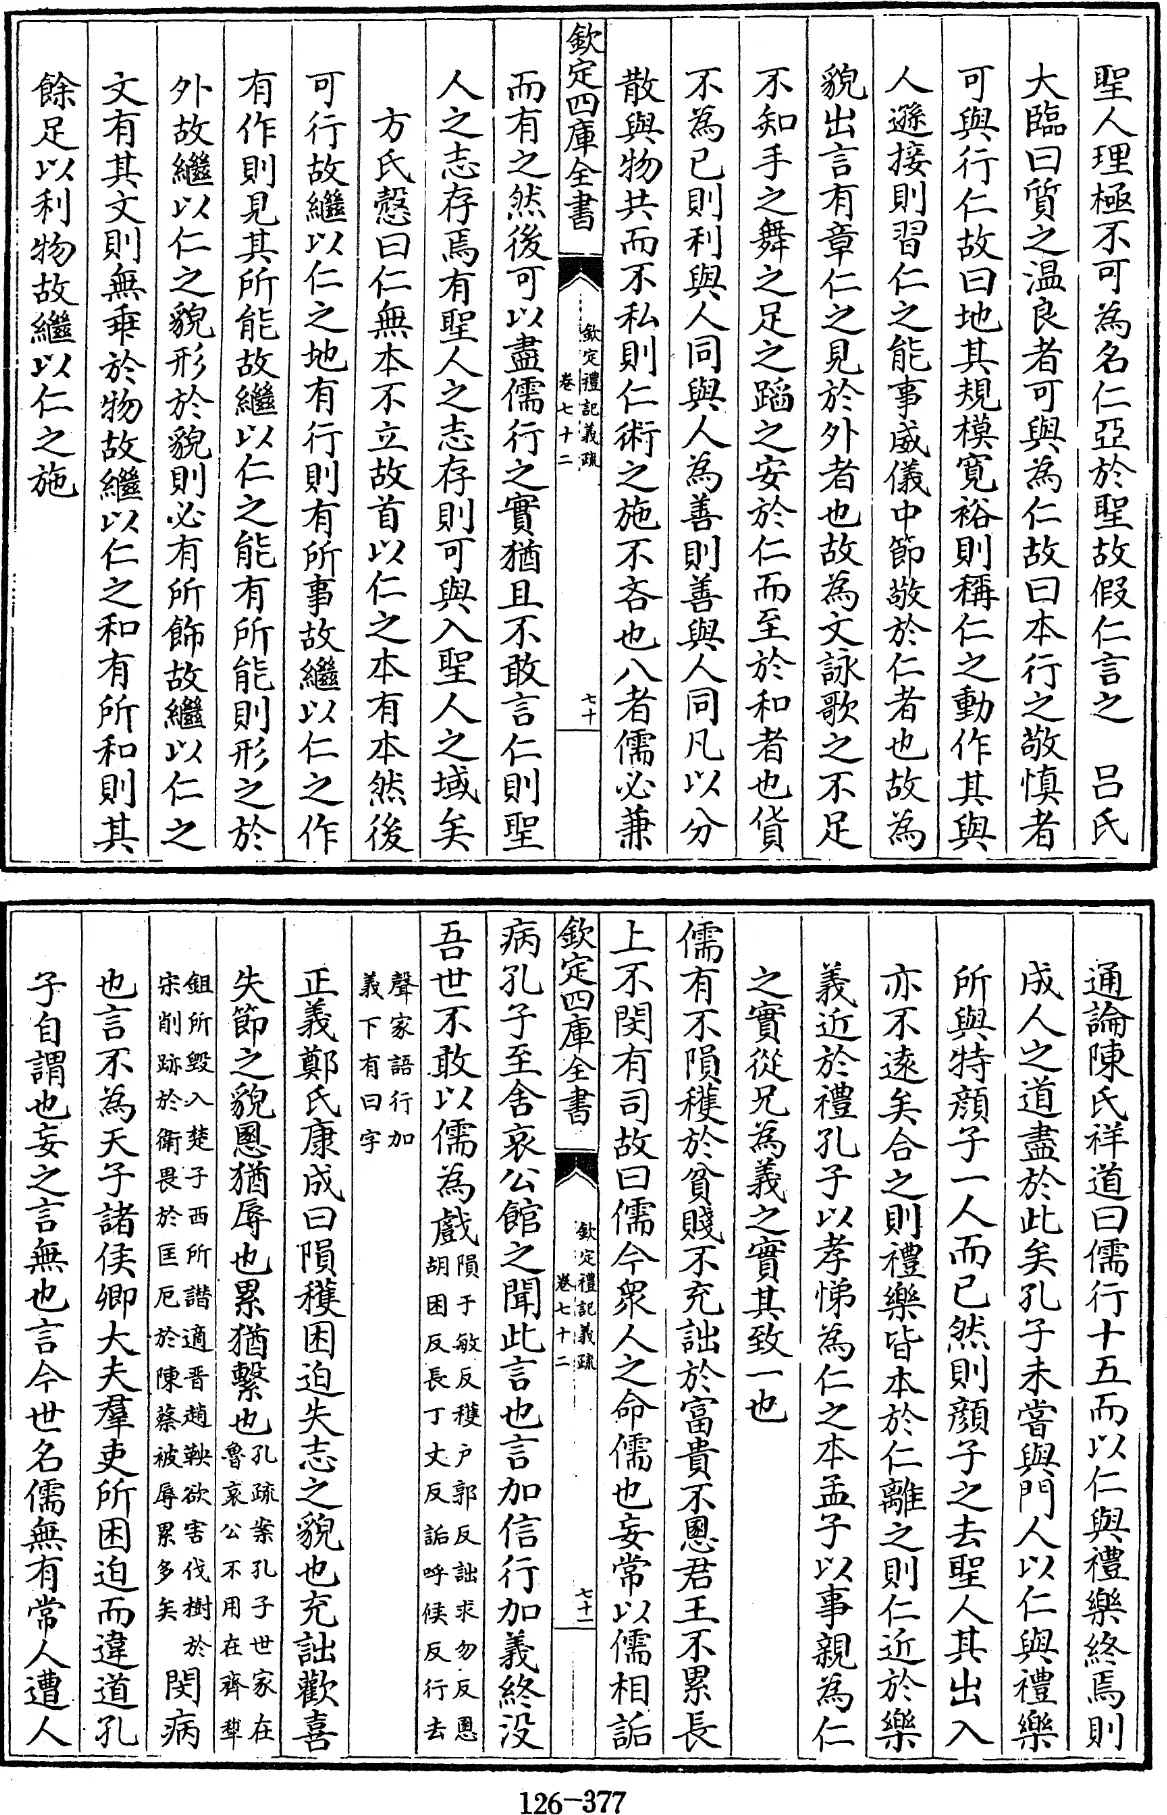 聖人理極不可為名仁亞於聖故假仁言之　呂氏
大臨曰質之温良者可與為仁故曰本行之敬慎者
可與行仁故曰地其規模寛裕則稱仁之動作其與
人遜接則習仁之能事威儀中節敬於仁者也故為
貌出言有章仁之見於外者也故為文詠歌之不足
不知手之舞之足之蹈之安於仁而至於和者也貨
不為已則利與人同與人為善則善與人同凡以分
散與物共而不私則仁術之施不吝也八者儒必兼
欽定四庫全書
欽定禮記義疏
卷七十二
七十
而有之然後可以盡儒行之實猶且不敢言仁則聖
人之志存焉有聖人之志存則可與入聖人之域矣
方氏慤曰仁無本不立故首以仁之本有本然後
可行故繼以仁之地有行則有所事故繼以仁之作
有作則見其所能故繼以仁之能有所能則形之於
外故繼以仁之貌形於貌則必有所飾故繼以仁之
文有其文則無乖於物故繼以仁之和有所和則其
餘足以利物故繼以仁之施
通論陳氏祥道曰儒行十五而以仁與禮樂終焉則
成人之道盡於此矣孔子未嘗與門人以仁與禮樂
所與特顔子一人而已然則顔子之去聖人其出入
亦不遠矣合之則禮樂皆本於仁離之則仁近於樂
義近於禮孔子以孝悌為仁之本孟子以事親為仁
之實從兄為義之實其致一也
儒有不隕穫於貧賤不充詘於富貴不慁君王不累長
上不閔有司故曰儒今衆人之命儒也妄常以儒相詬
欽定四庫全書
欽定禮記義疏
卷七十二
七十一
病孔子至舍哀公館之聞此言也言加信行加義終没
吾世不敢以儒為戲隕于敏反穫户郭反詘求勿反慁
胡困反長丁丈反詬呼候反行去
聲家語行加
義下有曰字
正義鄭氏康成曰隕穫困迫失志之貌也充詘歡喜
失節之貌慁猶辱也累猶繫也孔疏案孔子世家在
魯哀公不用在齊犂
鉏所毀入楚子西所譖適晋趙鞅欲害伐樹於
宋削跡於衛畏於匡厄於陳蔡被辱累多矣閔病
也言不為天子諸侯卿大夫羣吏所困迫而違道孔
子自謂也妄之言無也言今世名儒無有常人遭人
126-377